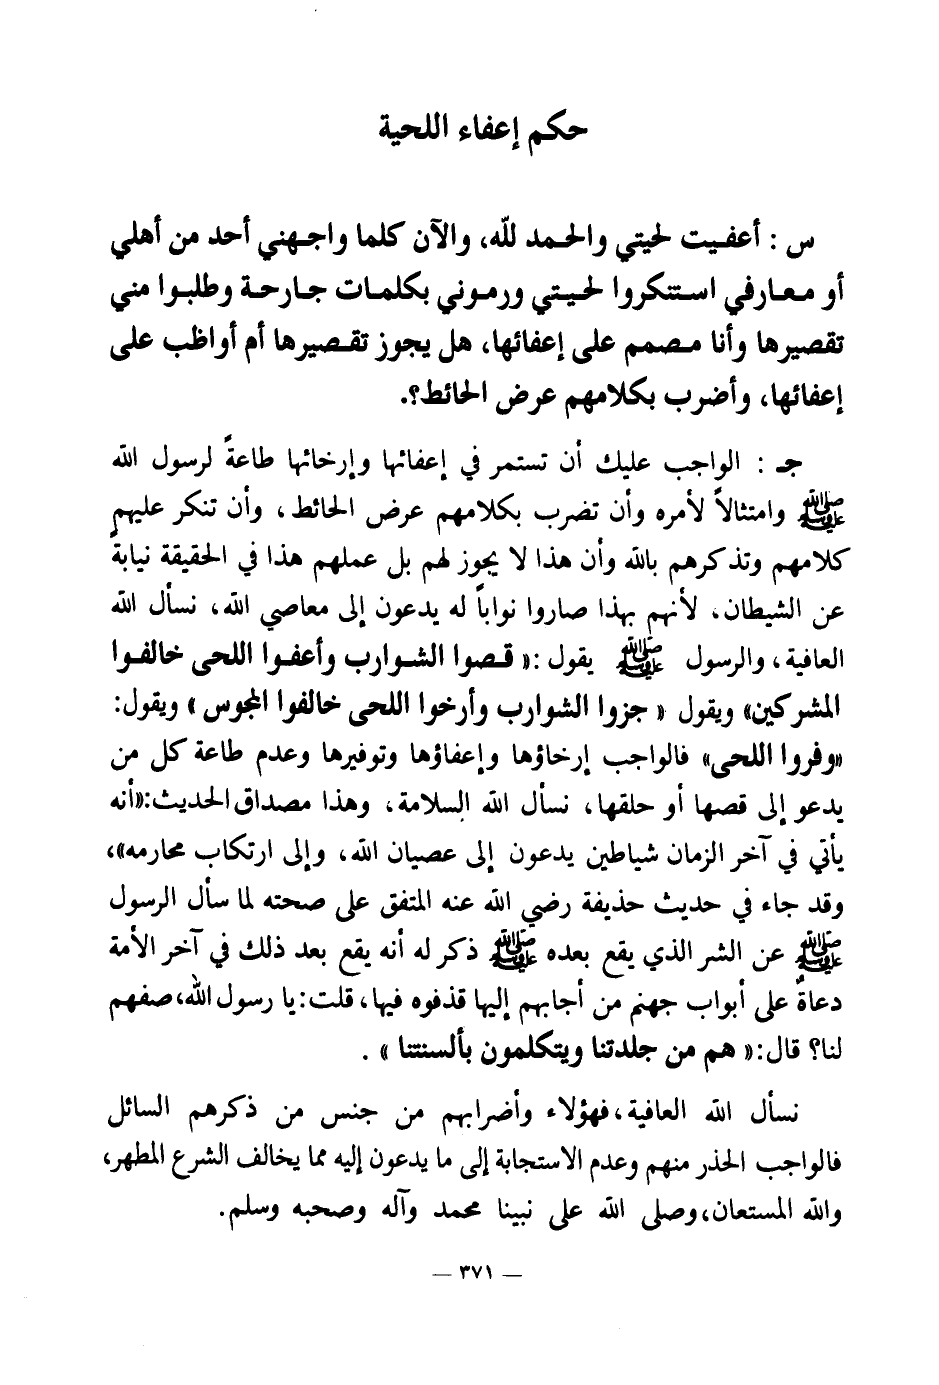 حكم إعفاء اللحية
س : أعفيت لحيتي والحمد لله، والآن كلما واجهني أحد من أهلي
أو معارفي استنكروا لحيتي ورموني بكلمات جارحة وطلبوا مني
تقصيرها وأنا مصمم على إعفائها، هل يجوز تقصيرها أم أواظب على
إعفائها، وأضرب بكلامهم عرض الحائط؟.
جـ : الواجب عليك أن تستمر في إعفائها وإرخائها طاعةً لرسول الله
ﷺ وامتثالاً لأمره وأن تضرب بكلامهم عرض الحائط، وأن تنكر عليهم
كلامهم وتذكرهم بالله وأن هذا لا يجوز لهم بل عملهم هذا في الحقيقة نيابةً
عن الشيطان، لأنهم بهذا صاروا نواباً له يدعون إلى معاصي الله، نسأل الله
العافية، والرسول ﷺ يقول :« قصوا الشوارب وأعفوا اللحى خالفوا
المشركين» ويقول « جزوا الشوارب وأرخوا اللحى خالفوا المجوس » ويقول:
«وفروا اللحى» فالواجب إرخاؤها وإعفاؤها وتوفيرها وعدم طاعة كل من
يدعو إلى قصها أو حلقها، نسأل الله السلامة، وهذا مصداق الحديث:«أنه
يأتي في آخر الزمان شياطين يدعون إلى عصيان الله، وإلى ارتكاب محارمه»،
وقد جاء في حديث حذيفة رضي الله عنه المتفق على صحته لما سأل الرسول
ﷺ عن الشر الذي يقع بعده ﷺ ذكر له أنه يقع بعد ذلك في آخر الأمة
دعاةٌ على أبواب جهنم من أجابهم إليها قذفوه فيها، قلت: يا رسول الله، صفهم
لنا؟ قال:« هم من جلدتنا ويتكلمون بألسنتنا » .
نسأل الله العافية، فهؤلاء وأضرابهم من جنس من ذكرهم السائل
فالواجب الحذر منهم وعدم الاستجابة إلى ما يدعون إليه مما يخالف الشرع المطهر،
والله المستعان، وصلى الله على نبينا محمد وآله وصحبه وسلم.
— ٣٧١ —